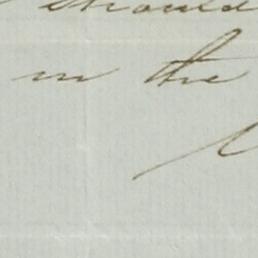 should
in the